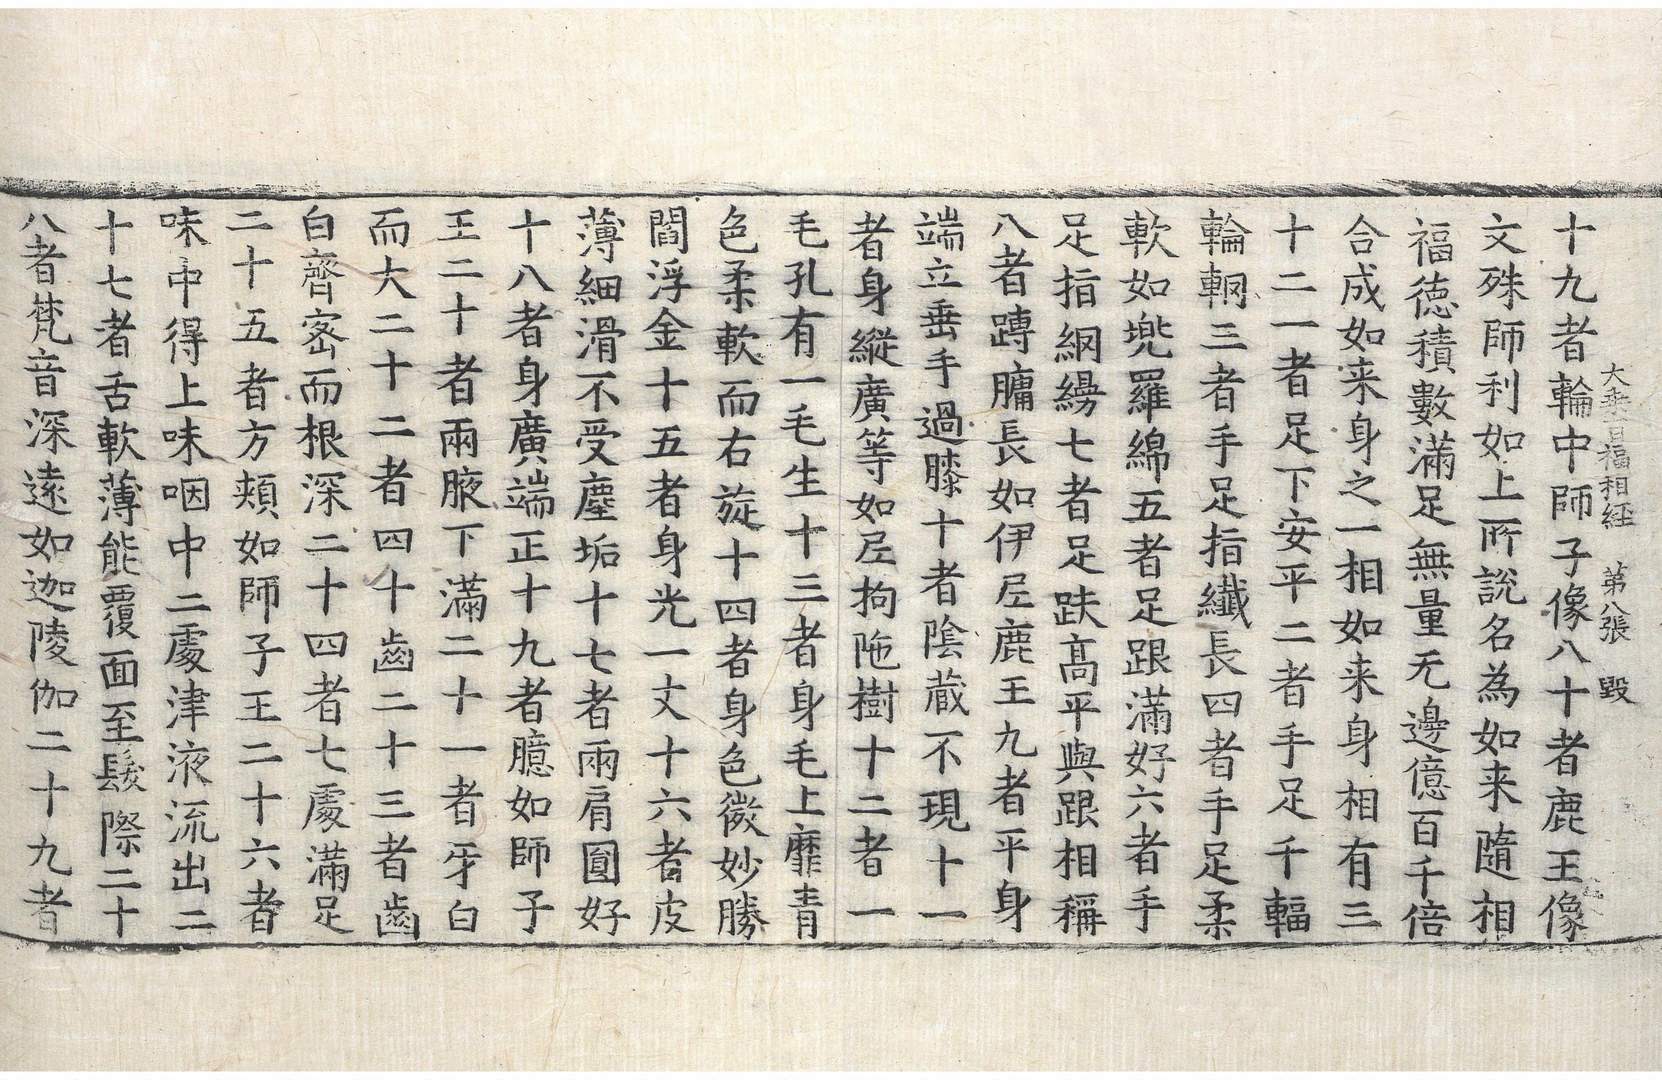 大乘百福相經 第八張 毀
十九者輪中師子像八十者鹿王像
文殊師利如上所說名為如来隨相
福德積數滿足無量无邊億百千倍
合成如来身之一相如来身相有三
十二一者足下安平二者手足千輻
輪輞三者手足指纖長四者手足柔
軟如兜羅綿五者足跟滿好六者手
足指網縵七者足趺高平與跟相稱
八者蹲𦟛長如伊尼鹿王九者平身
端立垂手過膝十者陰蔵不現十一
者身縱廣等如尼拘陁樹十二者一
毛孔有一毛生十三者身毛上靡青
色柔軟而右旋十四者身色微妙勝
閻浮金十五者身光一丈十六者皮
薄細滑不受塵垢十七者兩肩圓好
十八者身廣端正十九者臆如師子
王二十者兩腋下滿二十一者牙白
而大二十二者四十齒二十三者齒
白齊密而根深二十四者七處滿足
二十五者方頰如師子王二十六者
味中得上味咽中二處津液流出二
十七者舌軟薄能覆面至髮際二十
八者梵音深遠如迦陵伽二十九者